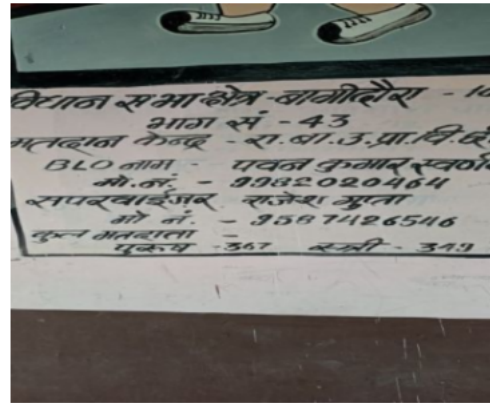 विधान सभा क्षेत्र - बागीदौरा - 16
भाग सं - 43
मतदान केन्द्र - रा. बा. उ. प्रा. वि.
BLO नाम - पवन कुमार स्वर्ण
मो. नं. - 9982020464
सुपरवाईजर राजेश गुप्ता
मो नं - 9587426546
कुल मतदाता -
पुरूष - 367 स्त्री - 349